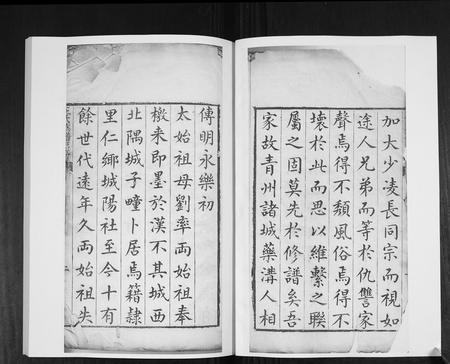 加大少凌長同宗而視如
途人兄弟而等於仇讐家
聲焉得不頹風俗焉得不
壞於此而思以維繫之聯
屬之固莫先於修譜矣吾
家故青州諸城藥溝人相
傳明永樂初
太始祖母劉率両始祖奉
檄来即墨於漢不其城西
北隅城子疃卜居焉籍隷
里仁鄉城陽社至今十有
餘世代遠年久両始祖失